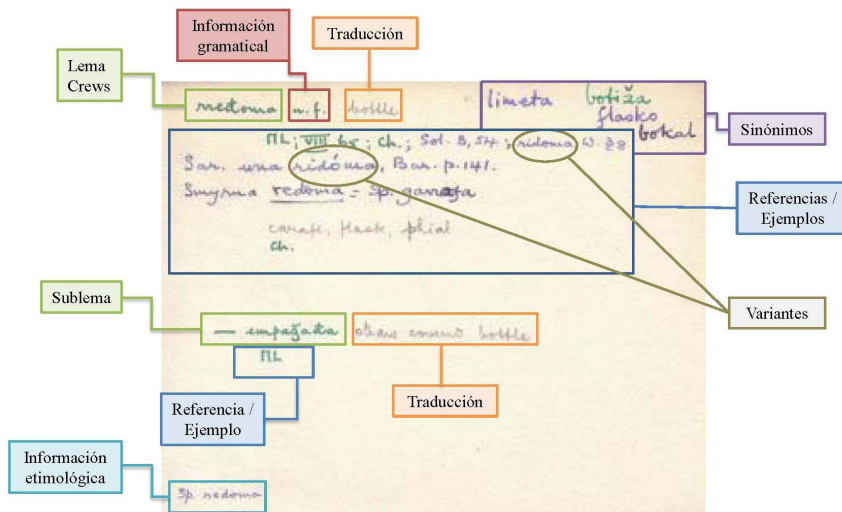 Información
gramatical
Traducción
Lema
Crews
redoma n. f. bottle
limeta botiža
flasko
bokal
Sinónimos
ML; VIII 65; Ch.; Sol. B, 54; ridoma W. §8.
Sar. una ridóma, Bar. p. 141.
Smyrna redoma = Sp. garrafa
carafe, flask, phial
Ch.
Referencias /
Ejemplos
Sublema
— empažada straw covered bottle
ML
Variantes
Referencia /
Ejemplo
Traducción
Información
etimológica
Sp. redoma